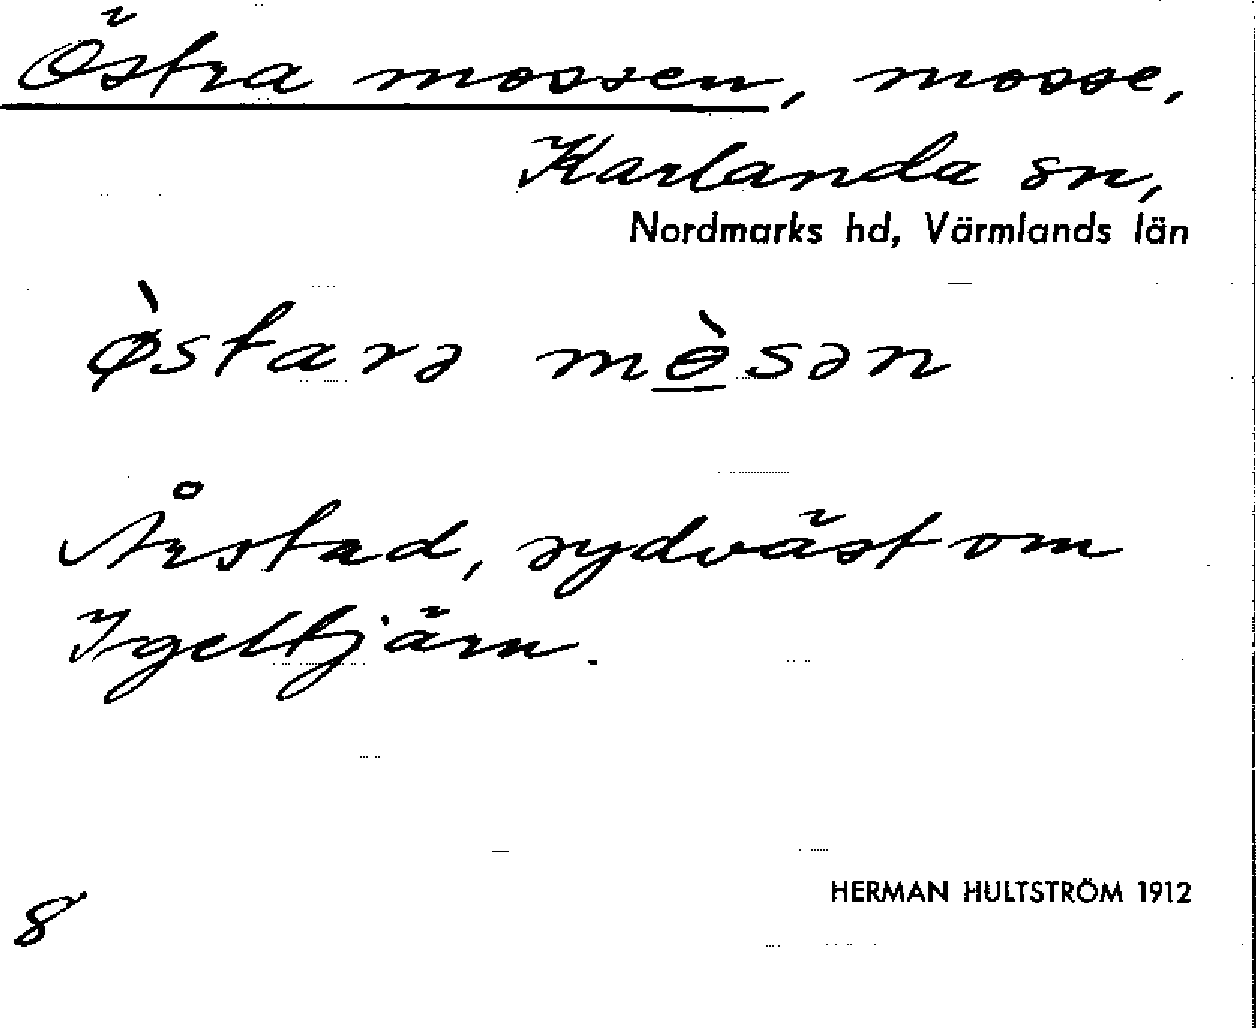 Östra mossen, mosse,
Karlanda sn,
Nordmarks hd, Värmlands län
ø̀starə mɵ̀sən
Årstad, sydväst om
Igeltjärn.
HERMAN HULTSTRÖM 1912
8